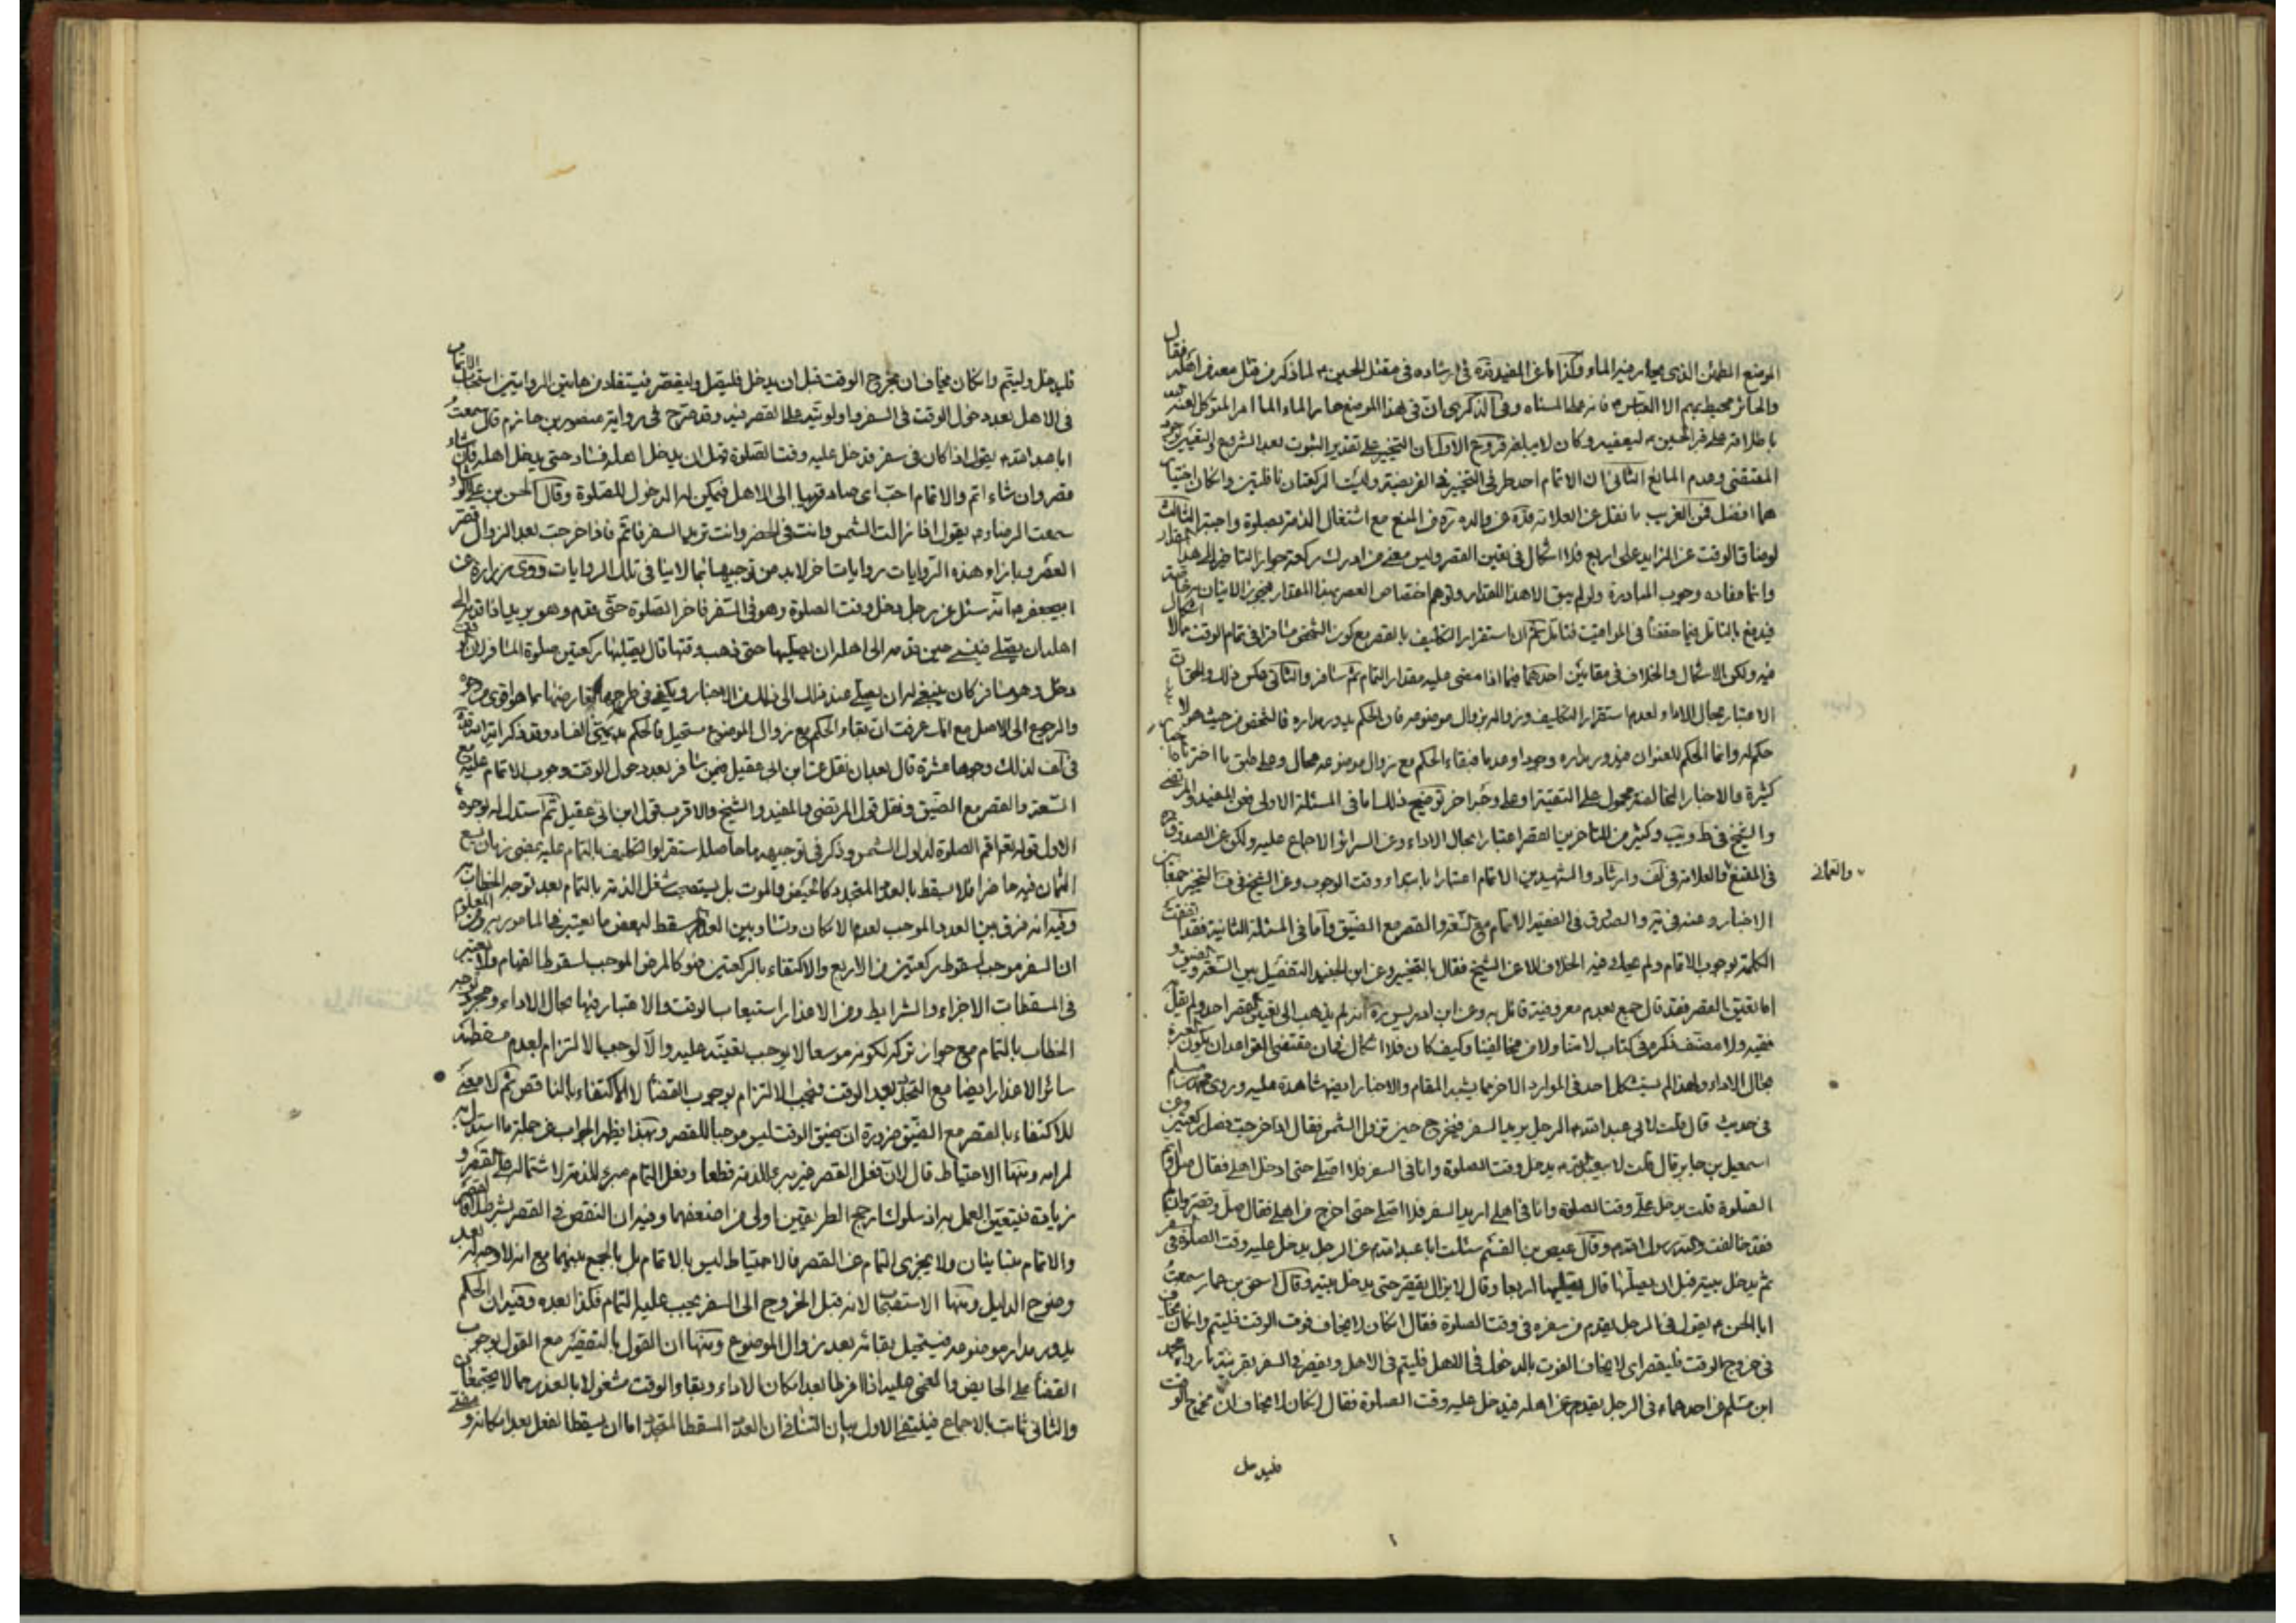 الموضع المطمئن الذى يحار فيه الماء وكذا ما عن المفيد قده فى ارشاده فى مقتل الحسين ع لما ذكر من قتل معه من اهله فقال
والحائر محيط بهم الا العباس ع فانه على المسناه وفى الذكرى ان فى هذا الموضع حار الماء لما امر المتوكل لعنه الله
باطلاقه على قبر الحسين ع ليعفيه وكان لا يبلغه فروع الاول ان التخيير على تقدير الثبوت لعدم الشرع
المقتضى وعدم المانع الثانى ان الاتمام احد طرفى التخيير فى الفريضة وليست الركعتان نافلتين وان كان اختيار
هما افضل فمن الغريب ما نقل عن العلامه قده عن والده ره من المنع مع اشتغال الذمة بصلوة واجبة الثالث
لو ضاق الوقت عن الزايد على اربع فلا اشكال فى تعين القصر وليس معنى من ادرك ركعة جواز التاخير الى هذا المقدار
وانما مفاده وجوب المبادرة ولو لم يبق الا هذا المقدار وتوهم اختصاص العصر بهذا المقدار فيجوز الاتيان
فيدفع بالتأمل فيما حققنا فى المواقيت فتامل ثم ان استقرار التكليف بالقصر مع كون الشخص مسافرا فى تمام الوقت مما لا اشكال
فيه ولكن الاشكال والخلاف فى مقامين احدهما فيما اذا مضى عليه مقدار التمام ثم سافر والثانى عكس ذلك والحق ان
الاعتبار بحال الاداء لعدم استقرار التكليف وزواله بزوال موضوعه فان الحكم يدور مداره فالشخص من حيث هو لا
حكم له وانما الحكم للعنوان فيدور مداره وجودا وعدما فبقاء الحكم مع زوال موضوعه محال وعلى طبق ما اخترناه اخبار
كثيرة والاخبار المخالفة محمول على التقية او على وجه اخر توضيح ذلك اما فى المسئلة الاولى فعن المفيد والمرتضى
والشيخ فى ط ويب وكثير من المتاخرين القصر اعتبارا بحال الاداء وعن السرائر الاجماع عليه ولكن عن الصدوق
فى المقنع والعلامه فى لف وارشاد والشهيدين الاتمام اعتبارا بابتداء وقت الوجوب وعن الشيخ فى ف التخيير جمعا بين
والعمانى
الاخبار وعنه فى يه والصدوق فى الفقيه الاتمام مع السعة والقصر مع الضيق واما فى المسئلة الثانية فقد اتفقت
الكلمة بوجوب الاتمام ولم يحك فيه الخلاف الا عن الشيخ فقال بالتخيير وعن ابن الجنيد التفصيل بين السعة والضيق و
اما تعين القصر فقد قال جمع بعدم معروفية قائل به وعن ابن ادريس ره انه لم يذهب الى تعين القصر احد ولم يقل به
فقيه ولا مصنف ذكره فى كتاب لا منا ولا من مخالفينا وكيف كان فلا اشكال فى ان مقتضى القواعد ان يكون العبرة
بحال الاداء ولهذا لم يستشكل احد فى الموارد الاخر مما يشبه المقام والاخبار ايضا شاهدة عليه وروى محمد بن مسلم
فى حديث قال قلت لابى عبد الله ع الرجل يريد السفر فيخرج حين تزول الشمس فقال اذا خرجت فصل ركعتين وعن
اسمعيل بن جابر قال قلت لابيعبدالله ع يدخل وقت الصلوة وانا فى السفر فلا اصلى حتى ادخل اهلى فقال صل واتم
الصلوة قلت يدخل على وقت الصلوة وانا فى اهلى اريد السفر فلا اصلى حتى اخرج من اهلى فقال صل وقصر وان لم تفعل
فقد خالفت والله رسول الله ص وقال عيص بن القسم سئلت ابا عبد الله ع عن الرجل يدخل عليه وقت الصلوة فى السفر
ثم يدخل بيته قبل ان يصليها قال يصليها اربعا وقال لا يزال يقصر حتى يدخل بيته وقال اسحق بن عمار سمعت
ابا الحسن ع يقول فى الرجل يقدم من سفره فى وقت الصلوة فقال ان كان لا يخاف فوت الوقت فليتم وان كان يخاف
فى خروج الوقت فليقصر اى لا يخاف الفوت بالدخول فى الاهل فليتم فى الاهل ويقصر فى السفر بقرينة ما رواه محمد
ابن مسلم عن احدهما ع فى الرجل يقدم من اهله فيدخل عليه وقت الصلوة فقال ان كان لا يخاف ان يخرج الوقت
فليدخل
فليدخل وليتم وان كان يخاف ان يخرج الوقت قبل ان يدخل فليصل وليقصر فيستفاد من هاتين الروايتين استحباب الاتمام
فى الاهل بعد دخول الوقت فى السفر وقد صرح فى رواية منصور بن حازم قال سمعت
ابا عبد الله ع يقول اذا كان فى سفر فدخل عليه وقت الصلوة قبل ان يدخل اهله فسار حتى يدخل اهله فان شاء
قصر وان شاء اتم والاتمام احب اى صار قريبا الى الاهل فيمكن له الدخول للصلوة وقال الحسن بن على الوشاء
سمعت الرضا ع يقول اذا زالت الشمس وانت فى الحضر وانت تريد السفر فاتم فاذا خرجت بعد الزوال قصر
العصر وبازاء هذه الروايات روايات اخر لابد من توجيهها بما لا ينافى تلك الروايات روى زرارة عن
ابيجعفر ع انه سئل عن رجل دخل وقت الصلوة وهو فى السفر فاخر الصلوة حتى قدم وهو يريد اذا قدم الى
اهله ان يصلى فنسى حين قدم الى اهله ان يصليها حتى ذهب وقتها قال يصليها ركعتين صلوة المسافر لان الوقت
دخل وهو مسافر كان ينبغى له ان يصلى عند ذلك الى غير ذلك من الاخبار ويكفى فى طرحها تعارضها بما هو اقوى من وجوه
والرجوع الى الاصل مع انك عرفت ان بقاء الحكم مع زوال الموضوع مستحيل فالحكم به بديهى الفساد وقد ذكر اية الله قده
فى لف لذلك وجوها عشرة قال بعد ان نقل عن ابن ابى عقيل فيمن سافر بعد دخول الوقت وجوب الاتمام عليه مع
السعة والقصر مع الضيق ونقل قول المرتضى والمفيد والشيخ والاقرب قول ابن ابى عقيل ثم استدل له بوجوه
الاول قوله تعالى اقم الصلوة لدلوك الشمس وذكر فى توجيهه ما حاصله استقرار التكليف بالتمام عليه بمضى زمان يسع
الثمان فيه حاضرا فلا يسقط بالعذر المتجدد كالحيض والموت بل يستصحب شغل الذمة بالتمام بعد توجه الخطاب به
وفيه انه فرق بين العذر الموجب لعدم الامكان وتساو بين العذر المسقط لبعض ما يعتبر فى المامور به ومن المعلوم
ان السفر موجب لسقوط ركعتين من الاربع والاكتفاء بالركعتين فهو كالمرض الموجب لسقوط القيام ولا يعتبر
فى المسقطات الاجزاء والشرايط ومن الاعذار استيعاب الوقت والاعتبار فيها بحال الاداء ومجرد توجه
الخطاب بالتمام مع جواز تركه لكونه موسعا لا يوجب تعينه عليه والا لوجب الالتزام بعدم مسقطية
سائر الاعذار ايضا مع التجدد بعد الوقت فيجب الالتزام بوجوب القضاء لا الاكتفاء بالناقص ثم لا معنى
للاكتفاء بالقصر مع الضيق ضرورة ان ضيق الوقت ليس موجبا للقصر وبهذا يظهر الجواب عن جملة ما استدل به
لمرامه ومنها الاحتياط قال لان فعل القصر غير مبرء للذمة قطعا وفعل التمام مبرء للذمة لاشتماله على القصر و
زيادة فيتعين العمل به اذ سلوك ارجح الطريقين اولى من اضعفهما وفيه ان النقص فى القصر بشرط لا فالقصر
والاتمام متباينان ولا يجزى التمام عن القصر فالاحتياط ليس بالاتمام بل بالجمع بينهما مع انه لا وجه له بعد
وضوح الدليل ومنها الاستصحاب لانه قبل الخروج الى السفر يجب عليه التمام فكذا بعده وفيه ان الحكم
يدور مدار موضوعه فيستحيل بقائه بعد زوال الموضوع ومنها ان القول بالتقصير مع القول بوجوب
القضاء على الحايض والمغمى عليه اذا فرطا بعد امكان الاداء وبقاء الوقت مشغولا بالعذر مما لا يجتمعان
والثانى ثابت بالاجماع فينتفى الاول بيان التنافى ان العذر المسقط المتجدد اما ان يسقط الفعل بعد امكانه و مضى